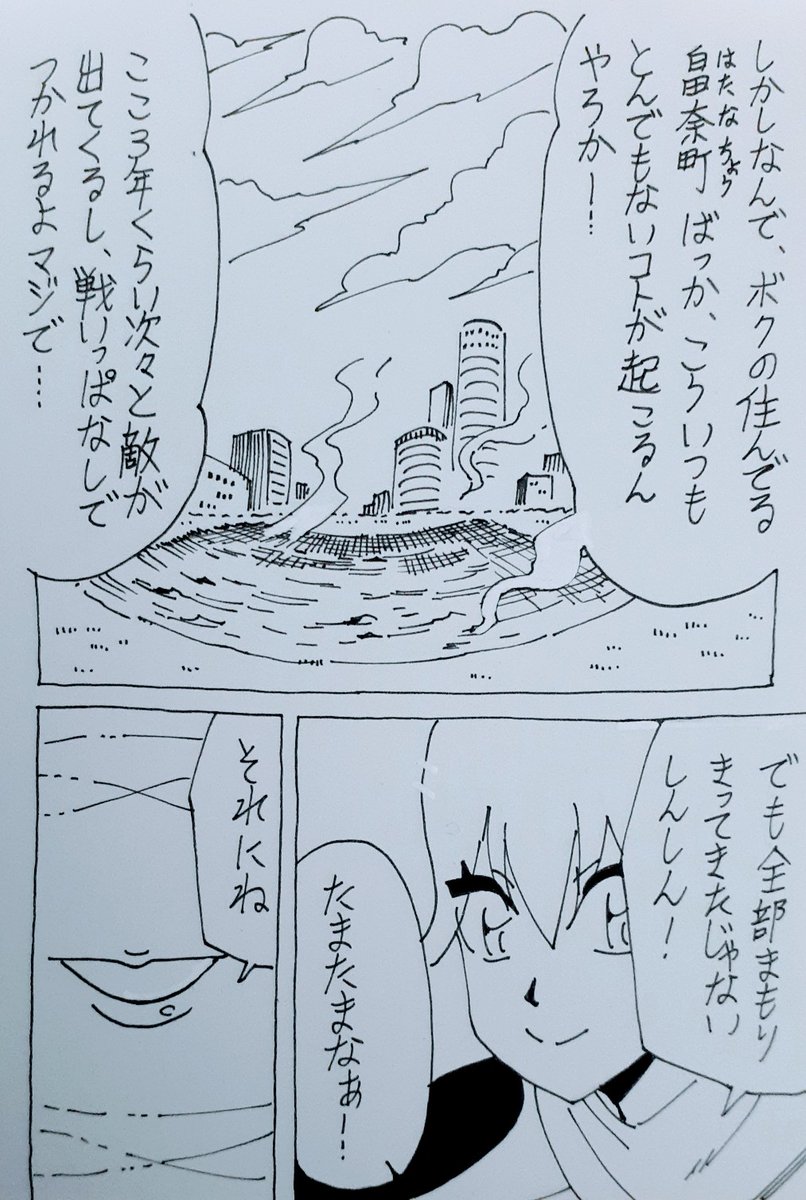 しかしなんで、ボクの住んでる
はたなちょう
畠奈町ばっか、こういつも
とんでもないコトが起こるん
やろかー…
ここ3年くらい次々と敵が
出てくるし、戦いっぱなしで
つかれるよマジで……
でも全部まもり
きってきたじゃない
しんしん！
たまたまなぁー…
それにね